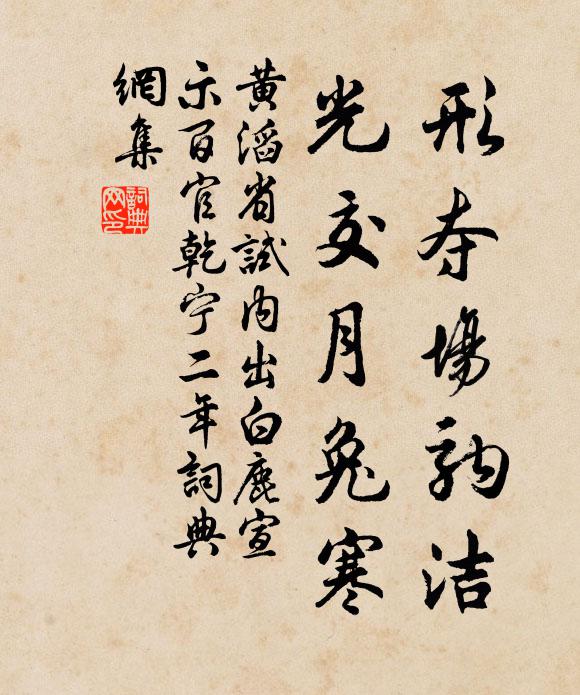 形夺場駒洁
光交月兔寒
黄滔省試内出白鹿宣
示百官乾宁二年詞典
網集
詞典
网印